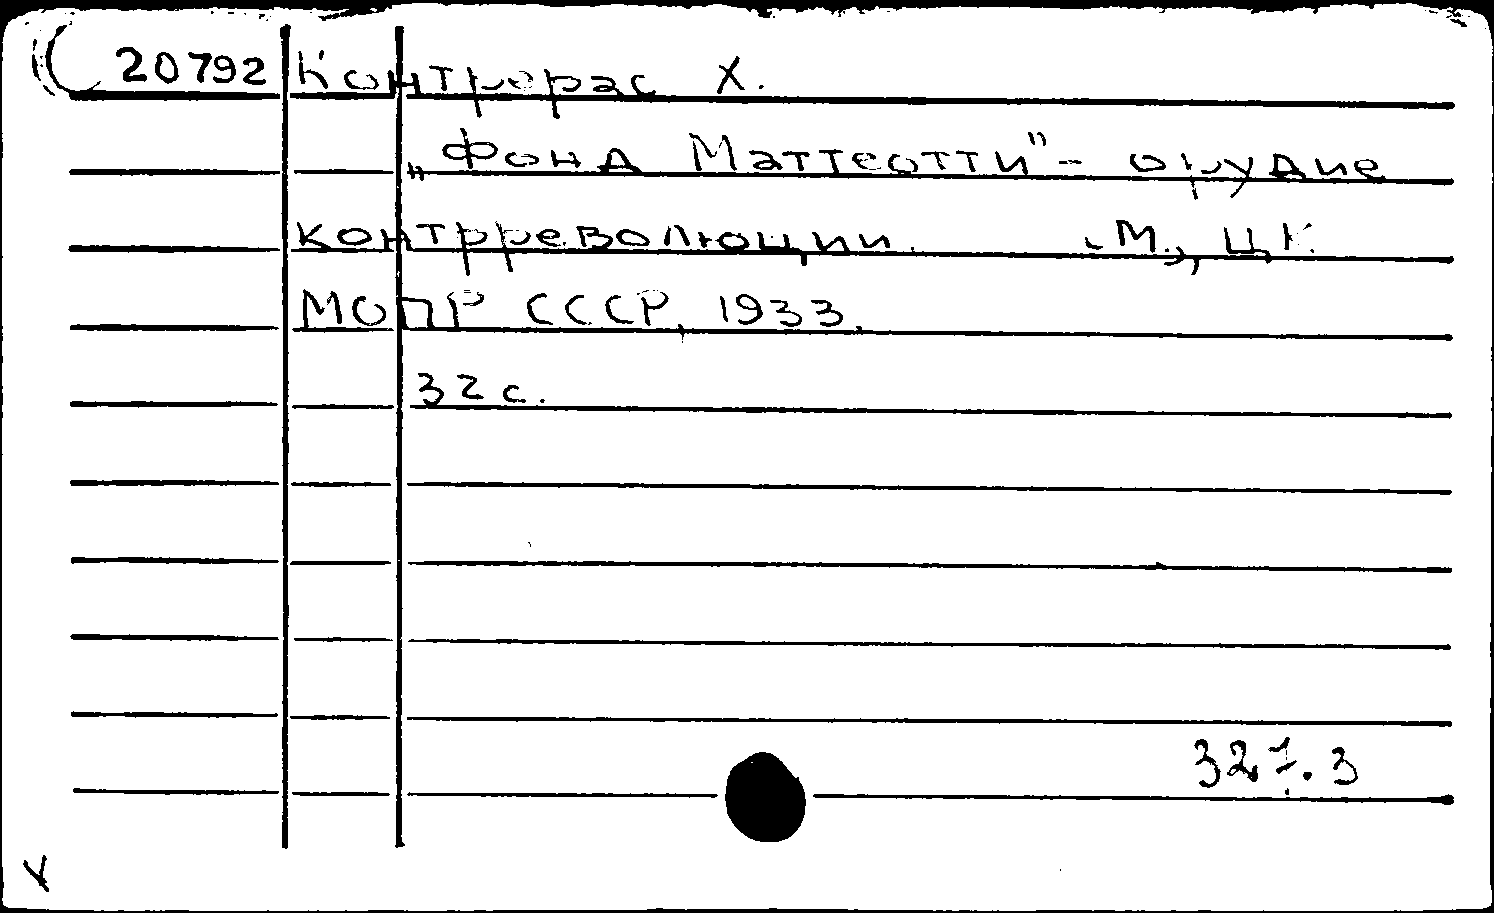 20792 Контрерас Х.
„Фонд Маттеотти" - орудие
контрреволюции. М., ЦК
МОПР СССР, 1933.
32 с.
327.3